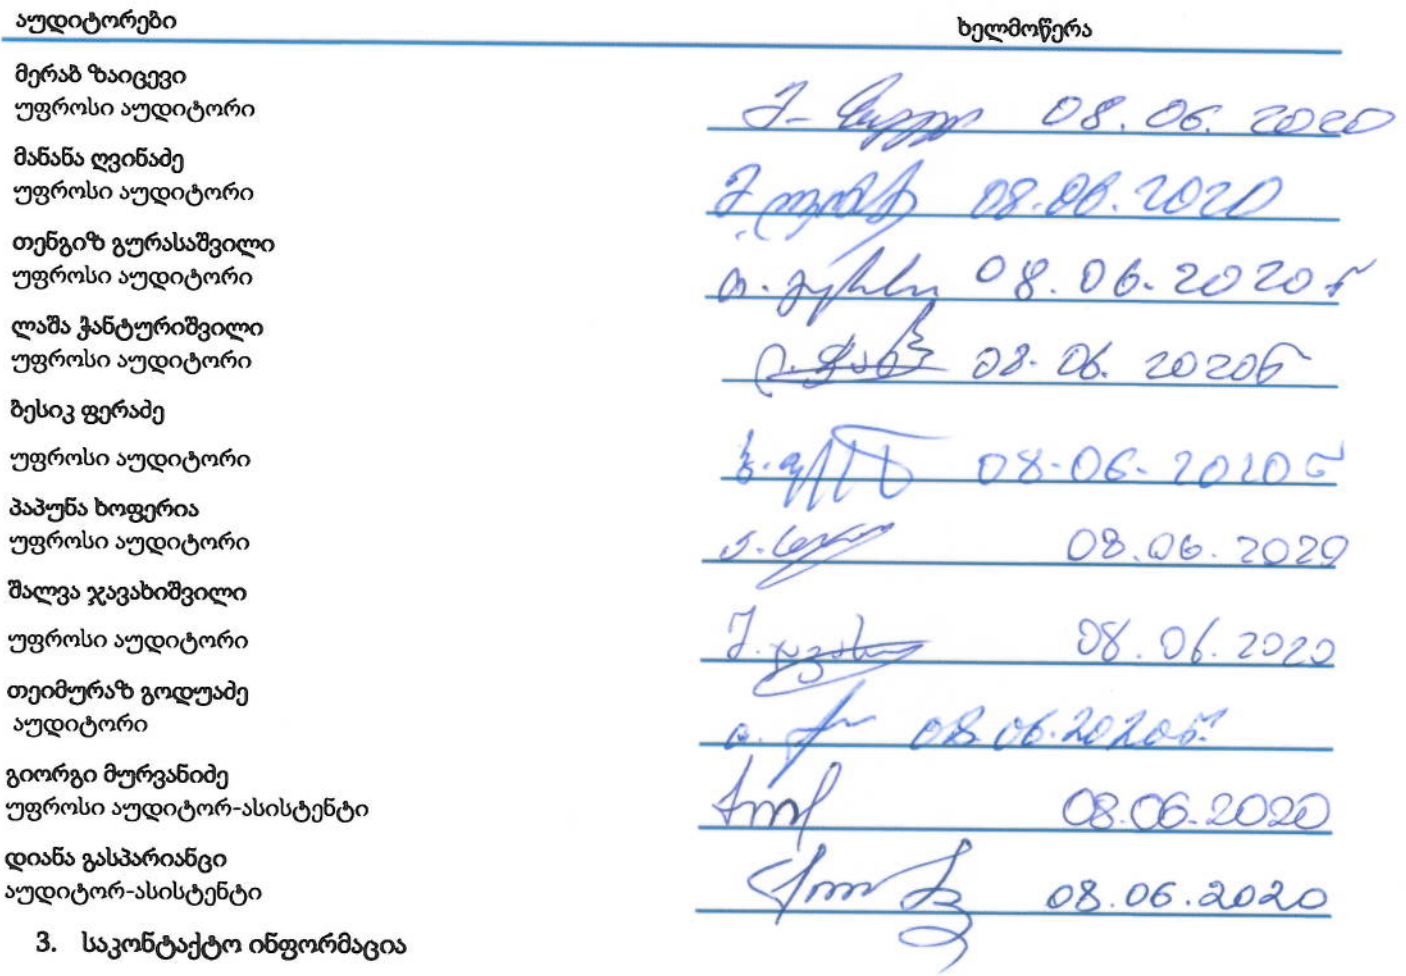 აუდიტორები ხელმოწერა
მერაბ ზაიცევი
უფროსი აუდიტორი 08.06.2020
მანანა ღვინაძე
უფროსი აუდიტორი 08.06.2020
თენგიზ გურასაშვილი
უფროსი აუდიტორი 08.06.2020წ
ლაშა ჭანტურიშვილი
უფროსი აუდიტორი 08.06.2020წ
ბესიკ ფერაძე
უფროსი აუდიტორი 08.06.2020წ
პაპუნა ხოფერია
უფროსი აუდიტორი 08.06.2020
შალვა ჯავახიშვილი
უფროსი აუდიტორი 08.06.2020
თეიმურაზ გოდუაძე
აუდიტორი 08.06.2020წ.
გიორგი მურვანიძე
უფროსი აუდიტორ-ასისტენტი 08.06.2020
დიანა გასპარიანცი
აუდიტორ-ასისტენტი 08.06.2020
3. საკონტაქტო ინფორმაცია